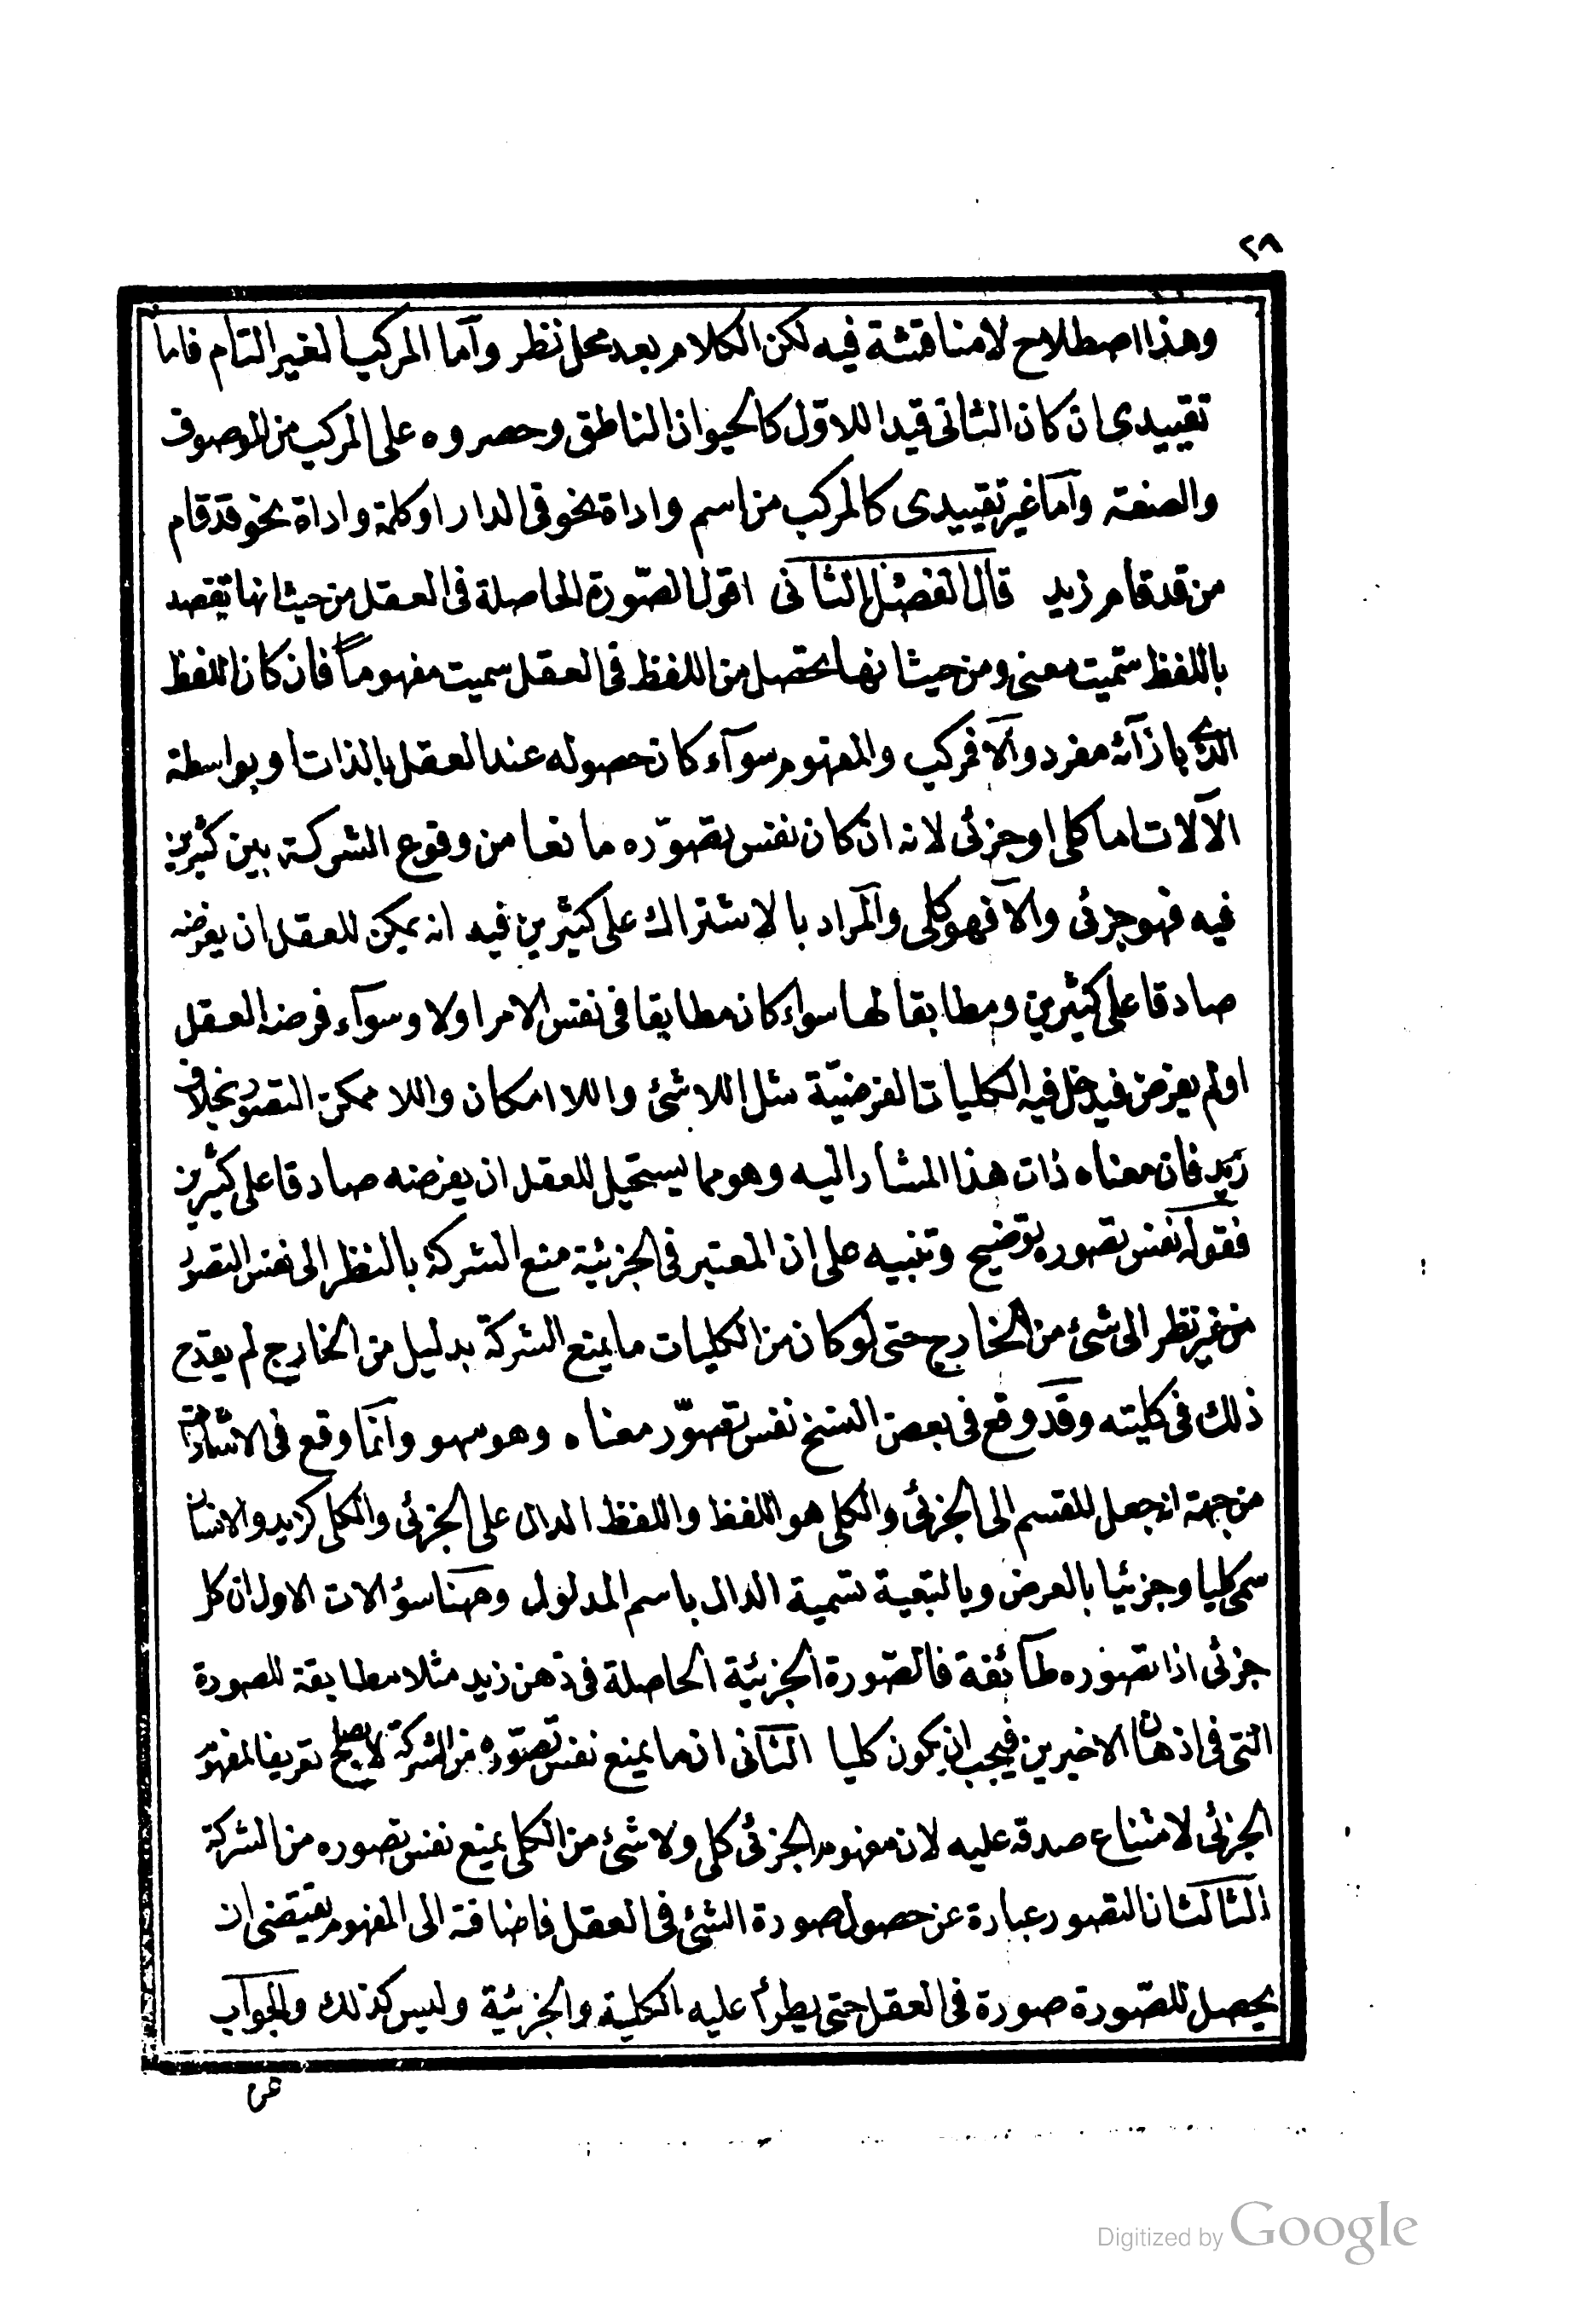 ٢٨
وهذا اصطلاح لا مناقشة فيه لكن الكلام بعد محل نظر وآما المركب الغير التام فاما
تقييدى ان كان الثانى قيدا للاوّل كالحيوان الناطق وحصروه على المركب من الموصوف
والصفة وآما غير تقييدى كالمركب من اسم واداة نحو فى الدار او كلمة واداة نحو قد قام
من قد قام زيد قال الفصل الثانى اقول الصّورة الحاصلة فى العقل من حيث انها تقصد
باللفظ سمّيت معنى ومن حيث انها تحصل من اللفظ فى العقل سميت مفهوماً فان كان اللفظ
الذى بازآئه مفرد والّا فمركب والمفهوم سوآء كان حصوله عند العقل بالذات او بواسطة
الآلات اما كلى او جزئى لانه ان كان نفس تصوّره مانعا من وقوع الشركة بين كثيرين
فيه فهو جزئى والّا فهو كلى والمراد بالاشتراك على كثيرين فيه انه يمكن للعقل ان يفرضه
صادقا على كثيرين ومطابقا لها سواء كان مطابقا فى نفس الامر اولا وسوآء فرضه العقل
او لم يفرض فيدخل فيه الكليات الفرضيّة مثل اللا شئ واللا امكان واللا ممكن التصوّر بخلاف
زيد فان معناه ذات هذا المشار اليه وهو مما يستحيل للعقل ان يفرضه صادقا على كثيرين
فقوله نفس تصوره توضيح وتنبيه على ان المعتبر فى الجزئية منع الشركة بالنظر الى نفس التصور
من غير نظر الى شئ من الخارج حتى لو كان من الكليات ما يمنع الشركة بدليل من الخارج لم يقدح
ذلك فى كليته وقد وقع فى بعض النسخ نفس تصوّر معناه وهو سهو وآنما وقع فى الاشارات
من جهة انه جعل المقسم الى الجزئى والكلى هو اللفظ واللفظ الدال على الجزئى والكلى كزيد والانسان
سمى كليا وجزئيا بالعرض وبالتبعية تسمية الدال باسم المدلول وههنا سؤالات الاول ان كل
جزئى اذا تصوره طآئفة فالصّورة الجزئية الحاصلة فى ذهن زيد مثلا مطابقة للصورة
التى فى اذهان الاخيرين فيجب ان يكون كليا الثانى ان ما يمنع نفس تصوّره من الشركة لا يصلح تعريفا لمفهوم
الجزئى لامتناع صدقه عليه لان مفهوم الجزئى كلى ولا شئ من الكلى يمنع نفس تصوره من الشركة
الثالث ان التصور عبارة عن حصول صورة الشئ فى العقل فاضافة الى المفهوم يقتضى ان
يحصل للصّورة صورة فى العقل حتى يطرأ عليه الكلية والجزئية وليس كذلك والجواب
عن
Digitized by Google